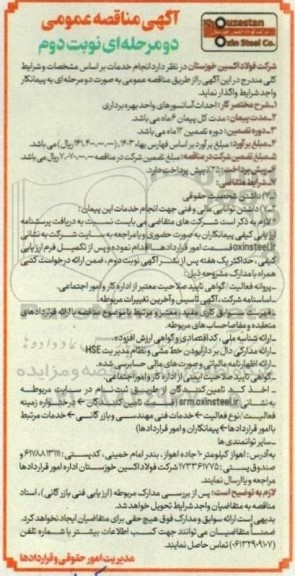 آگهی مناقصه عمومی
دو مرحله‌ای نوبت دوم
Khouzestan
Oxin Steel Co.
شرکت فولاد اکسین خوزستان در نظر دارد انجام خدمات بر اساس مشخصات و شرایط
کلی مندرج در این آگهی را از طریق مناقصه عمومی به صورت دو مرحله ای به پیمانکار
واجد شرایط واگذار نماید.
۱-شرح مختصر کار: احداث آسانسورهای واحد بهره برداری
۲-مدت پیمان: مدت کل پیمان ۶ ماه می باشد.
۳-دوره تضمین: دوره تضمین ۱۲ ماه می باشد.
۴-مبلغ برآورد: مبلغ برآورد بر اساس فهارس بها
۵-مبلغ تضمین شرکت در مناقصه: مبلغ تضمین شرکت در مناقصه
۶-پیش پرداخت: ۲۵٪ پیش پرداخت دارد.
۷-شرایط متقاضی:
۷-۱ داشتن شخصیت حقوقی
۷-۲ داشتن توانایی مالی و فنی جهت انجام خدمات این پیمان:
لازم به ذکر است شرکت های متقاضی می بایست نسبت به دریافت پرسشنامه
ارزیابی کیفی پیمانکاران به صورت حضوری و یا مراجعه به سایت شرکت به نشانی
oxinsteel.ir قسمت امور قراردادها اقدام نموده و پس از تکمیل فرم ارزیابی
کیفی، حداکثر یک هفته پس از نشر آگهی نوبت دوم، ضمن ارائه درخواست کتبی
همراه با مدارک مشروحه ذیل:
-پروانه فعالیت / گواهی تایید صلاحیت معتبر از اداره کار و امور اجتماعی.
-اساسنامه شرکت، آگهی تاسیس و آخرین تغییرات مربوطه.
سوابق کاری مفید، معتبر و مرتبط با موضوع مناقصه با ارائه قراردادهای
منعقده و مفاصاحساب های مربوطه.
-ارائه شناسه ملی، کد اقتصادی و گواهی ارزش افزوده
-ارائه مدارکی دال بر دارا بودن خط مشی و نظام مدیریت HSE
-ارائه اظهارنامه مالیاتی و صورت های مالی حسابرسی شده.
-گواهی تایید صلاحیت ایمنی از اداره کار و امور اجتماعی.
-اخذ کد تامین کنندگان از طریق ثبت نام در سایت مربوطه
به نشانی srm.oxinsteel.ir
فعالیت / نوع فعالیت > خدمات فنی مهندسی و بازرگانی > خدمات مرتبط
با امور قراردادها > پیمانکاران و امور قراردادها)
-سایر توانمندی ها
به آدرس: اهواز کیلومتر ۱۰ جاده اهواز، بندر امام خمینی، کدپستی: ۶۱۷۸۸۱۳۱۱۱ و
صندوق پستی: ۱۷۲۳۶۱۷۷۵ شرکت فولاد اکسین خوزستان اداره امور قراردادها
مراجعه و یا ارسال نمایند.
لازم به توضیح است: پس از بررسی مدارک مربوطه (ارزیابی فنی بازرگانی)، اسناد
مناقصه به متقاضیان واجد شرایط تحویل خواهد شد.
بدیهی است ارائه سوابق و مدارک فوق هیچ حقی برای متقاضیان ایجاد نخواهد کرد.
ضمنا متقاضیان می توانند جهت کسب اطلاعات بیشتر با شماره تلفن
(۰۶۱۳۲۹۰۹۱۰۷) تماس حاصل نمایند.
مدیریت امور حقوقی و قراردادها